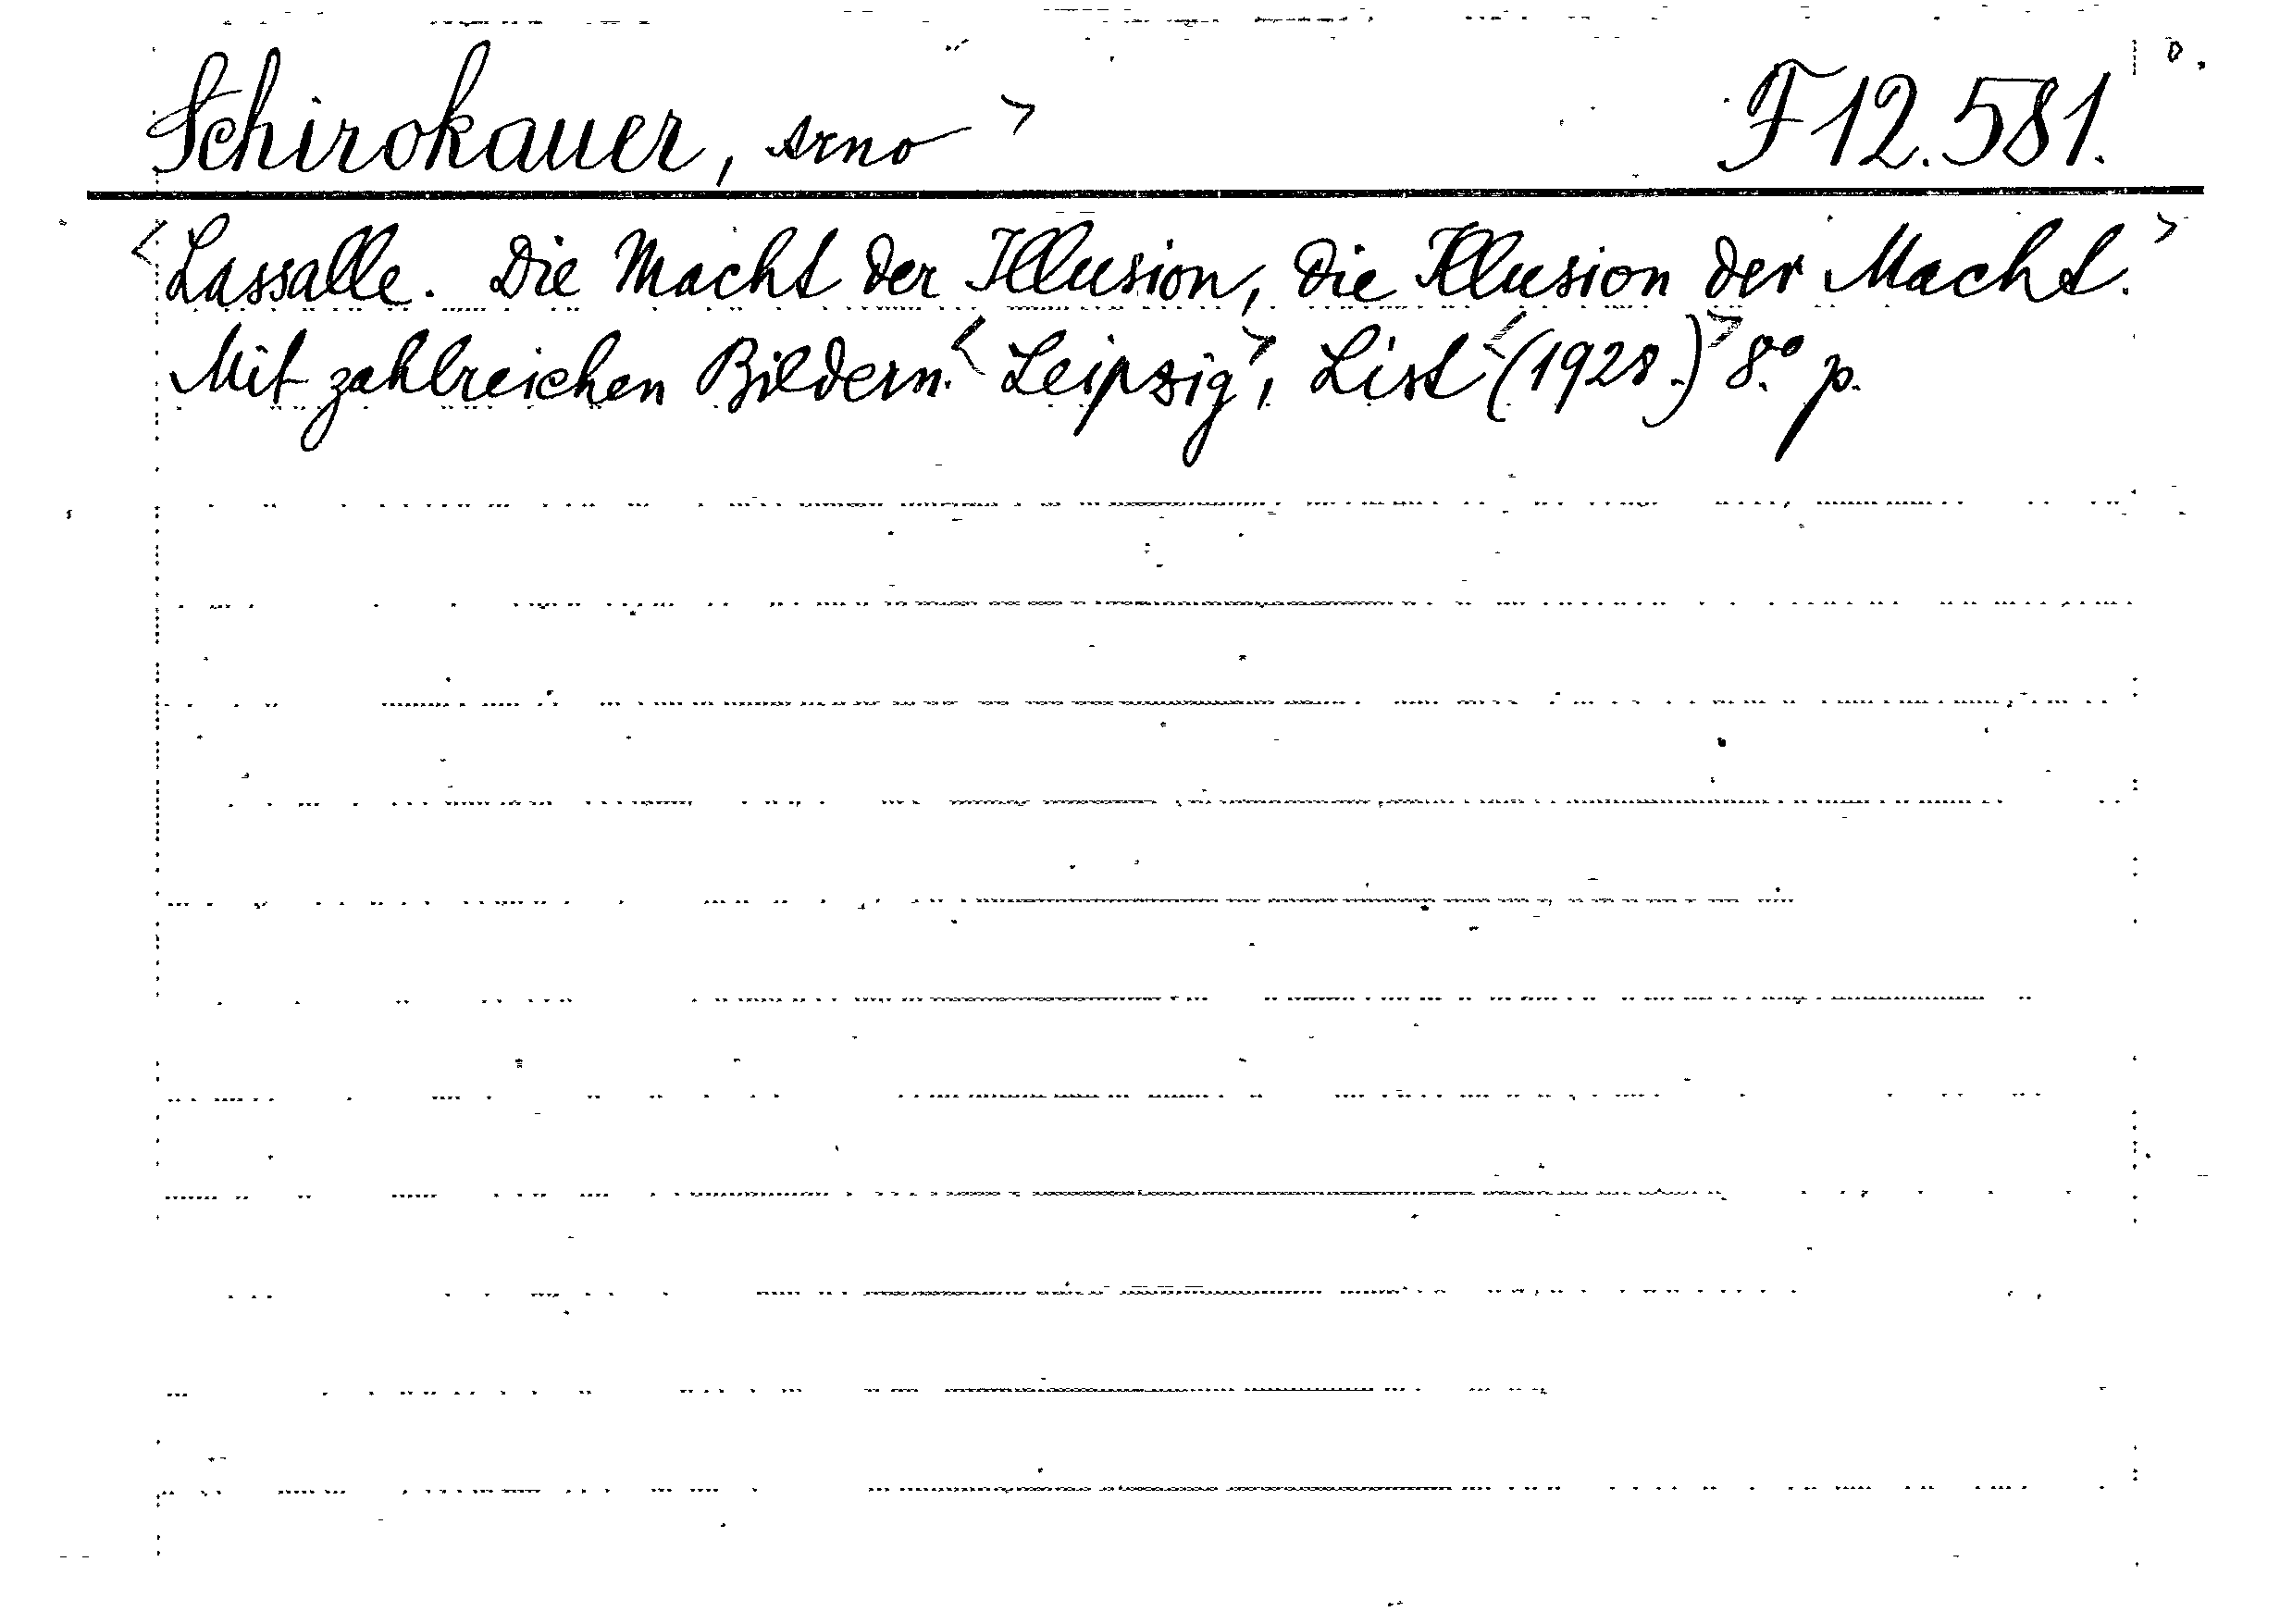 Schirokauer, Arno> F 12.581.
<Lassalle. Die Macht der Illusion, die Illusion der Macht.>
Mit zahlreichen Bildern.<Leipzig>, List<(1928.)>8.° p.